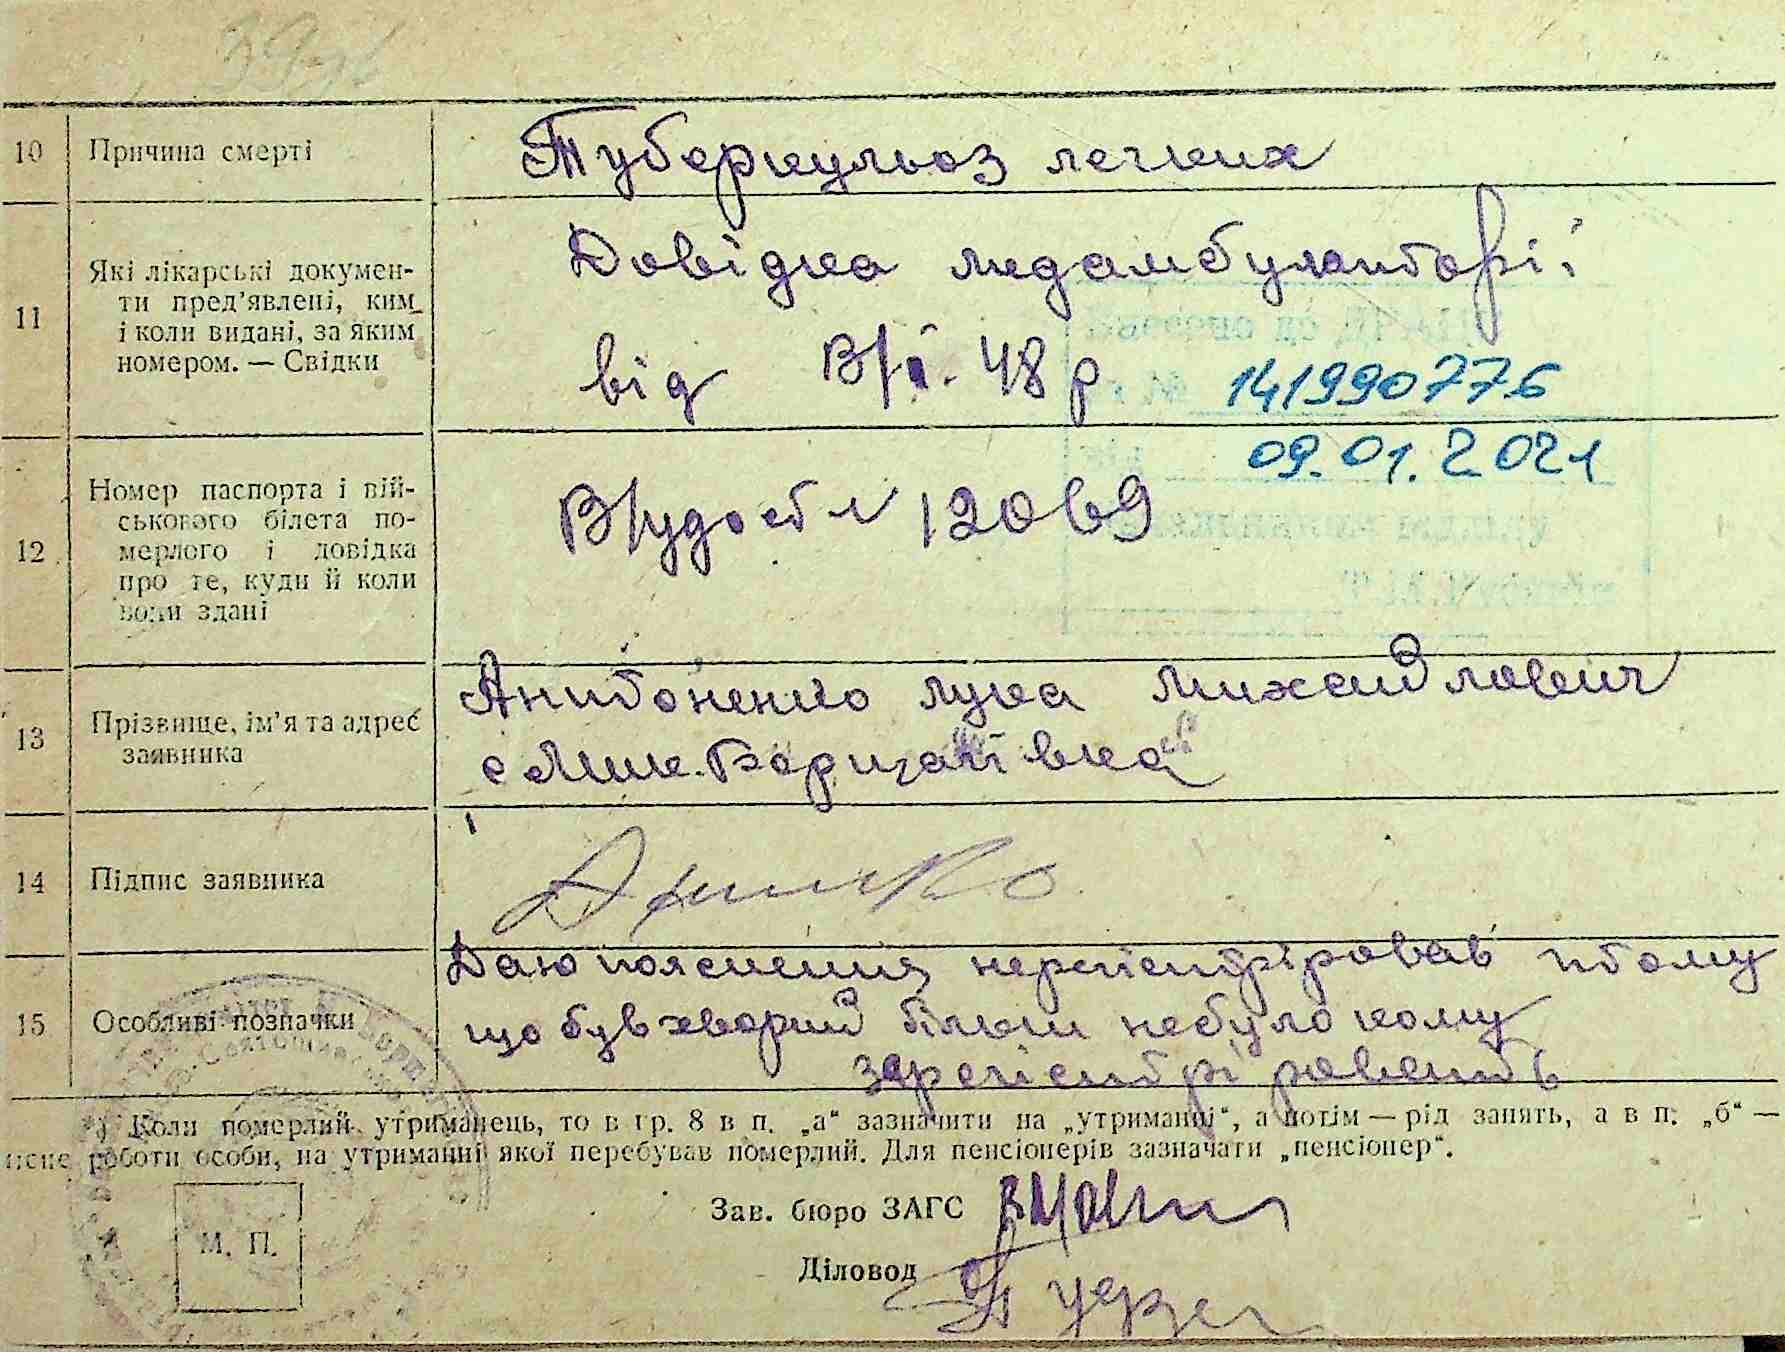 10 Причина смерті Туберкульоз легких
11 Які лікарські докумен-
ти пред'явлені, ким
і коли видані, за яким
номером. — Свідки
Довідка медамбулаторії
від 8/І. 48 р
141990776
09.01.2021
12 Номер паспорта і вій-
ськового білета по-
мерлого і довідка
про те, куди й коли
вони здані
В/удост № 12069
13 Прізвище, ім'я та адрес
заявника
Антоненко Лука Михайлович
с Мик. Борщагівка
14 Підпис заявника
15 Особливі позначки
Даю пояснения нерегістріровав тому
що був хворий більш небуло кому
зарегістрі ровать
) Коли померлий утриманець, то в гр. 8 в п. „а“ зазначити на „утриманні“, а потім — рід занять, а в п. „б“ —
роботи особи, на утриманні якої перебував померлий. Для пенсіонерів зазначати „пенсіонер“.
Зав. бюро ЗАГС
М. П.
Діловод